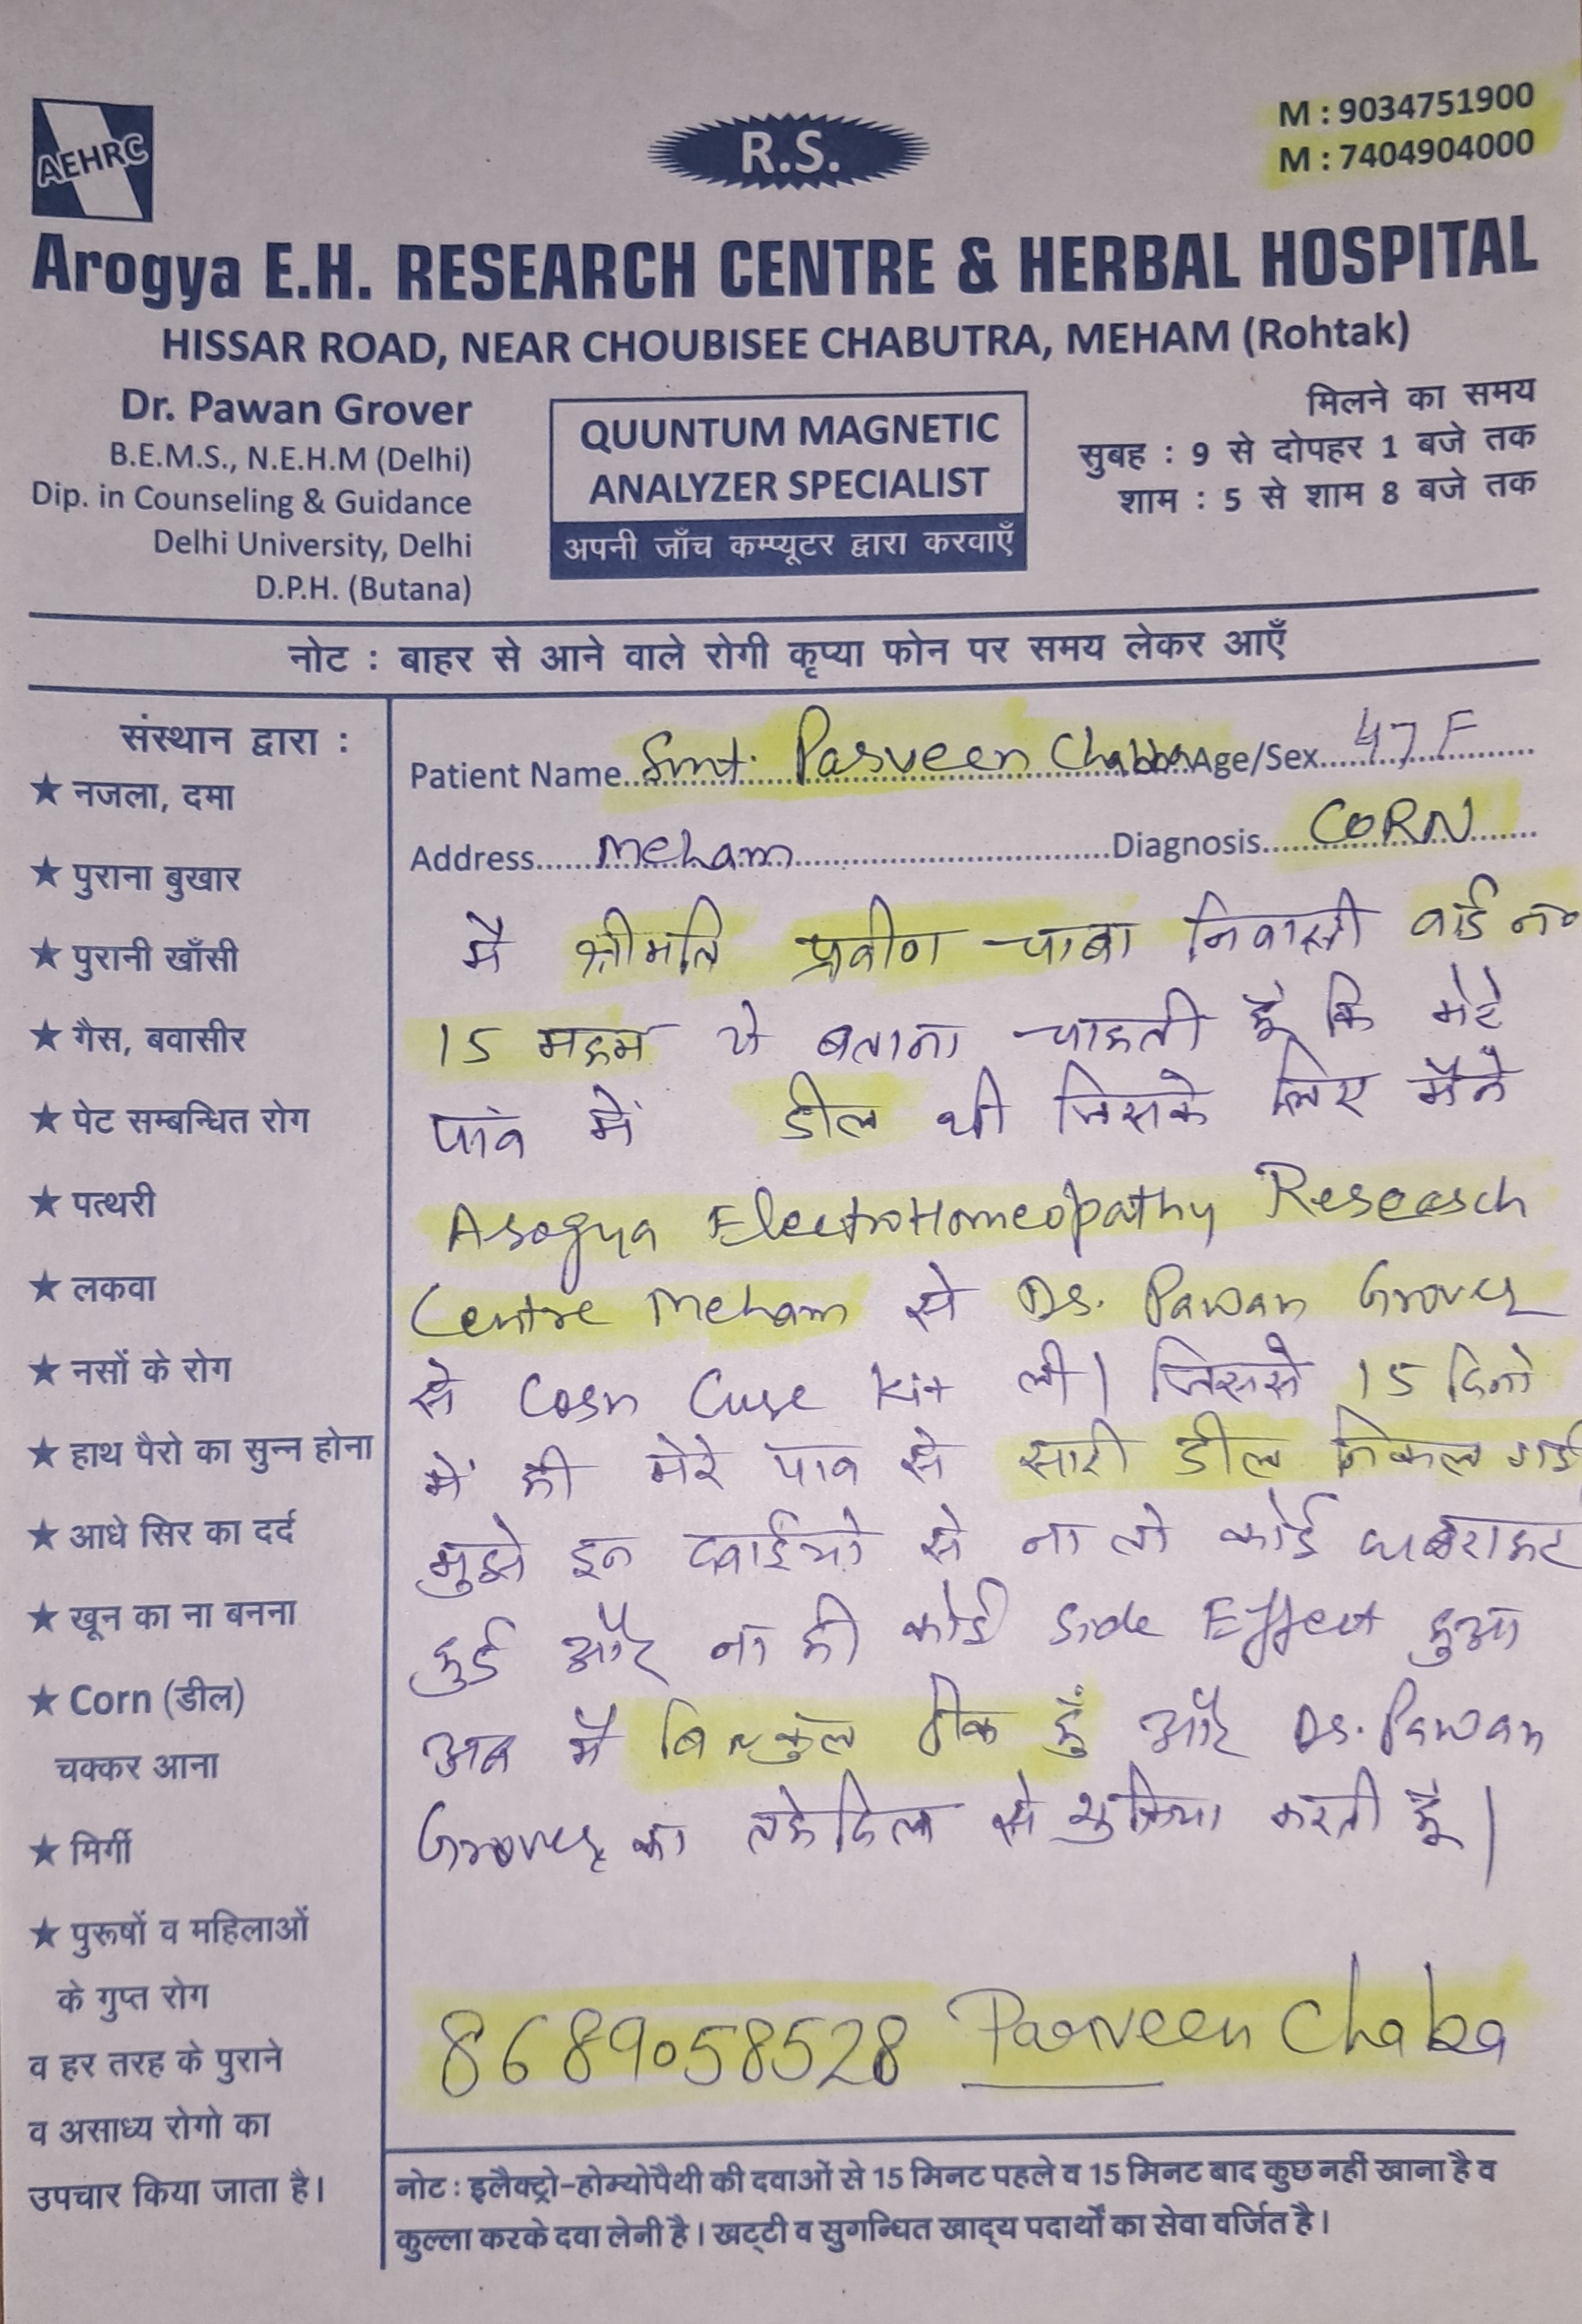 AEHRC
R.S.
M : 9034751900
M : 7404904000
Arogya E.H. RESEARCH CENTRE & HERBAL HOSPITAL
HISSAR ROAD, NEAR CHOUBISEE CHABUTRA, MEHAM (Rohtak)
Dr. Pawan Grover
B.E.M.S., N.E.H.M (Delhi)
Dip. in Counseling & Guidance
Delhi University, Delhi
D.P.H. (Butana)
QUUNTUM MAGNETIC
ANALYZER SPECIALIST
अपनी जाँच कम्प्यूटर द्वारा करवाएँ
मिलने का समय
सुबह : 9 से दोपहर 1 बजे तक
शाम : 5 से शाम 8 बजे तक
नोट : बाहर से आने वाले रोगी कृप्या फोन पर समय लेकर आएँ
संस्थान द्वारा :
★ नजला, दमा
★ पुराना बुखार
★ पुरानी खाँसी
★ गैस, बवासीर
★ पेट सम्बन्धित रोग
★ पत्थरी
★ लकवा
★ नसों के रोग
★ हाथ पैरो का सुन्न होना
★ आधे सिर का दर्द
★ खून का ना बनना
★ Corn (डील)
चक्कर आना
★ मिर्गी
★ पुरूषों व महिलाओं
के गुप्त रोग
व हर तरह के पुराने
व असाध्य रोगो का
उपचार किया जाता है।
Patient Name Smt. Parveen Chabba Age/Sex 47 F
Address Meham Diagnosis CORN
मै श्रीमति प्रवीण चाबा निवासी वार्ड न०
15 महम ये बताना चाहती हूँ कि मेरे
पांव में डील थी जिसके लिए मैने
Arogya ElectroHomeopathy Research
Centre Meham से Dr. Pawan Grover
से Corn Cure Kit ली। जिससे 15 दिनो
में ही मेरे पाव से सारी डील निकल गई
मुझे इन दवाईयो से ना तो कोई घबराहट
हुई और ना ही कोई Side Effect हुआ
अब मै बिल्कुल ठीक हुं और Dr. Pawan
Grover का तहेदिल से शुक्रिया करती हूँ।
8689058528 Parveen Chaba
नोट : इलैक्ट्रो-होम्योपैथी की दवाओं से 15 मिनट पहले व 15 मिनट बाद कुछ नहीं खाना है व
कुल्ला करके दवा लेनी है। खट्टी व सुगन्धित खाद्य पदार्थों का सेवा वर्जित है।